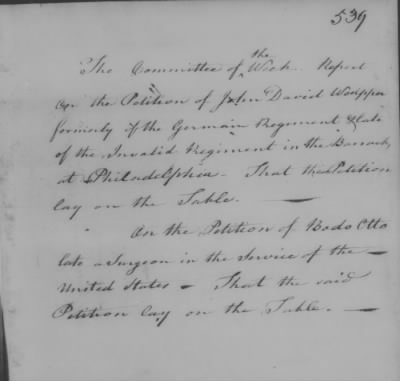 539
The Committee of the Week Report
On the Petition of John David Woelpper
formerly of the German Regiment & late
of the Invalid Regiment in the Barracks
at Philadelphia - That the Petition
lay on the Table. —
On the Petition of Bodo Otto
late a Surgeon in the Service of the —
United States - That the said
Petition lay on the Table. —